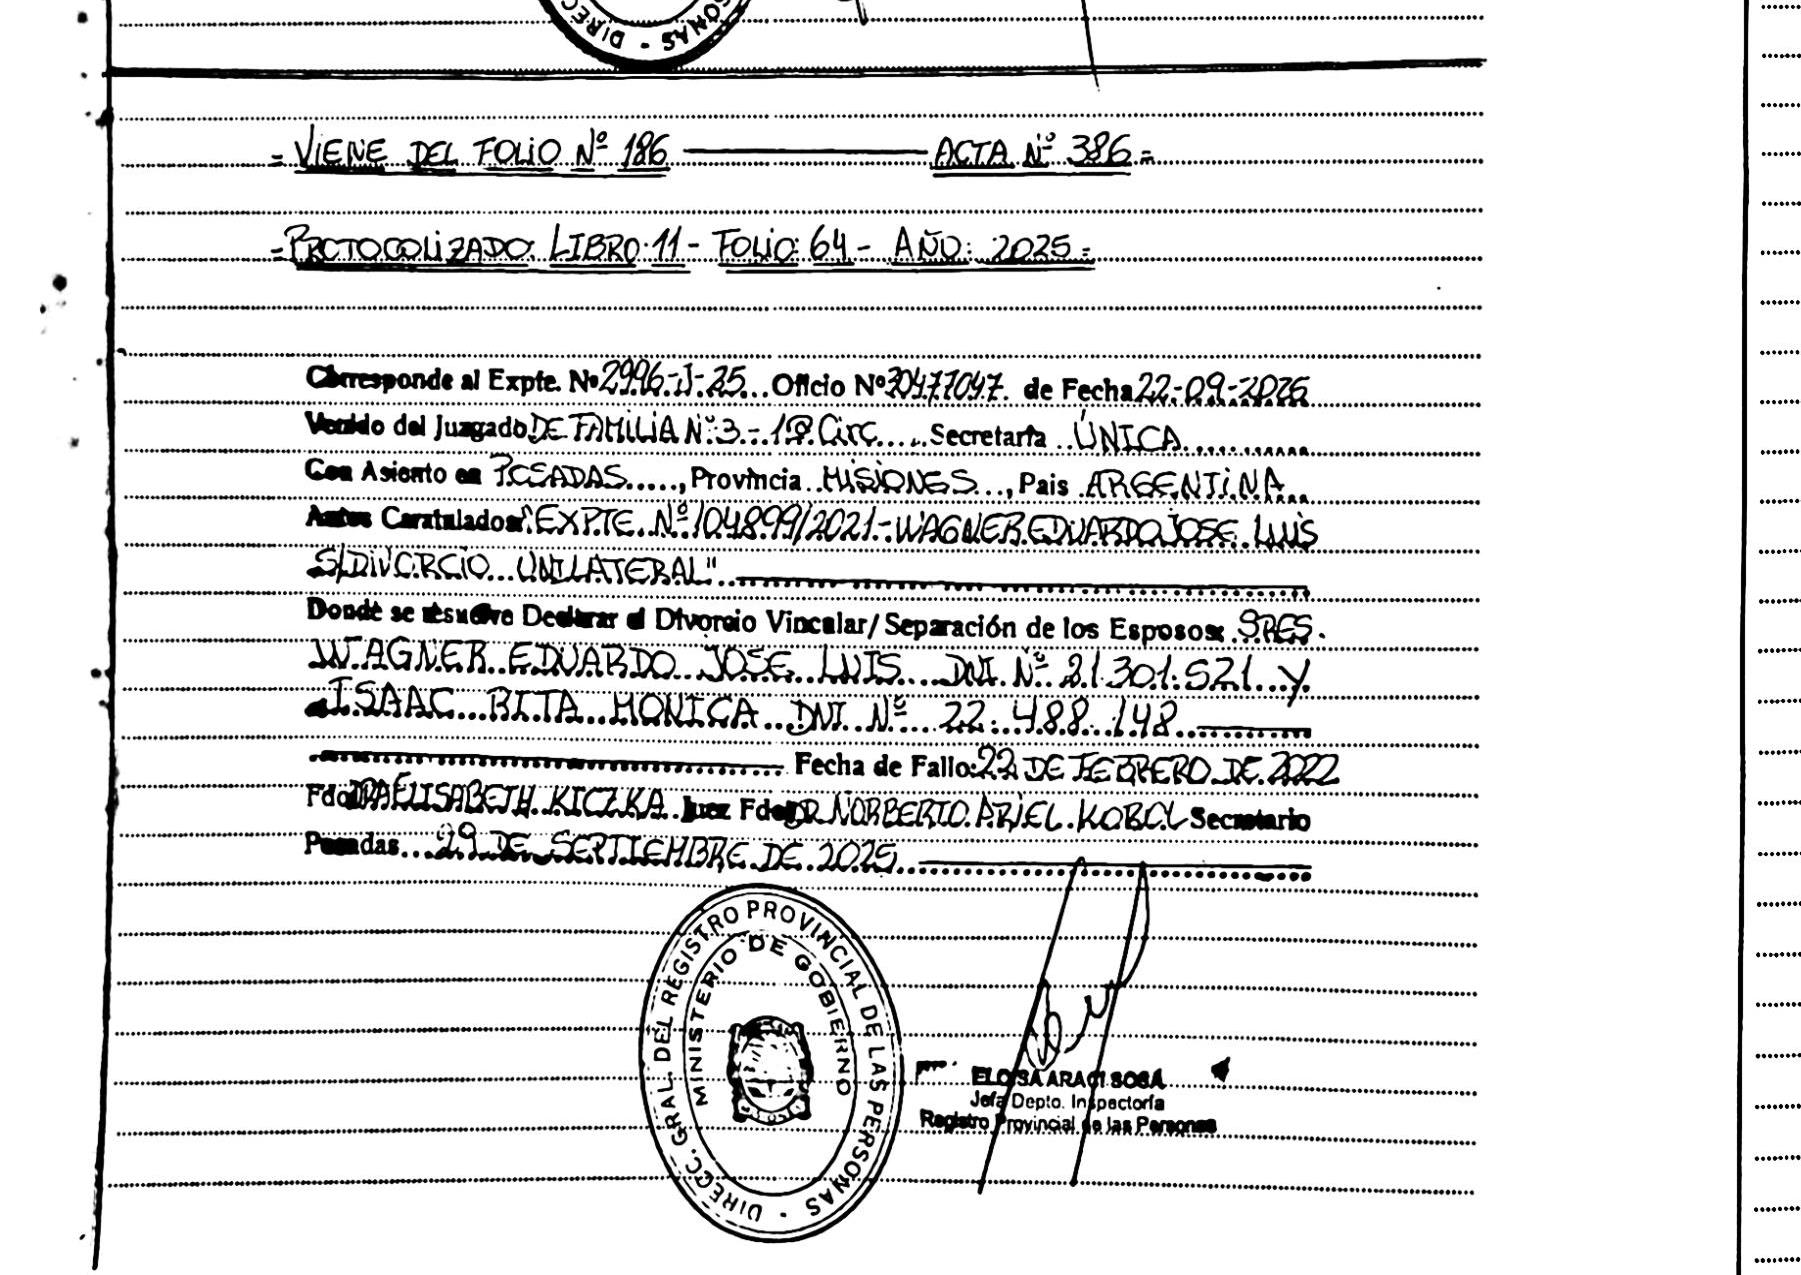 DIRECC. SONAS -
= VIENE DEL FOLIO Nº 186 ——— ACTA Nº 386 =
= PROTOCOLIZADO: LIBRO: 11 - FOLIO: 64 - AÑO: 2025 =
Corresponde al Expte. Nº 2996-J-25... Oficio Nº 30477047. de Fecha 22-09-2025
Venido del Juzgado DE FAMILIA Nº 3 - 1º Circ..... Secretaría .. ÚNICA..........
Con Asiento en POSADAS....., Provincia .. MISIONES..., Pais ARGENTINA...
Autos Caratulados: "EXPTE. Nº 104899/2021 - WAGNER EDUARDO JOSE LUIS
S/DIVORCIO UNILATERAL"
Donde se resuelve Declarar el Divorcio Vincular/Separación de los Esposos: SRES.
WAGNER EDUARDO JOSE LUIS DNI Nº 21.301.521 Y
ISAAC RITA MONICA DNI Nº 22.488.148
Fecha de Fallo: 22 DE FEBRERO DE 2022
Fdo: DRA ELISABETH KICZKA Juez Fdo: DR NORBERTO ARIEL KOBOL Secretario
Posadas... 29 DE SEPTIEMBRE DE 2025
DIRECC. GRAL. DEL REGISTRO PROVINCIAL DE LAS PERSONAS -
MINISTERIO DE GOBIERNO
ELOISA ARACI SOSA
Jefa Depto. Inspectoría
Registro Provincial de las Personas